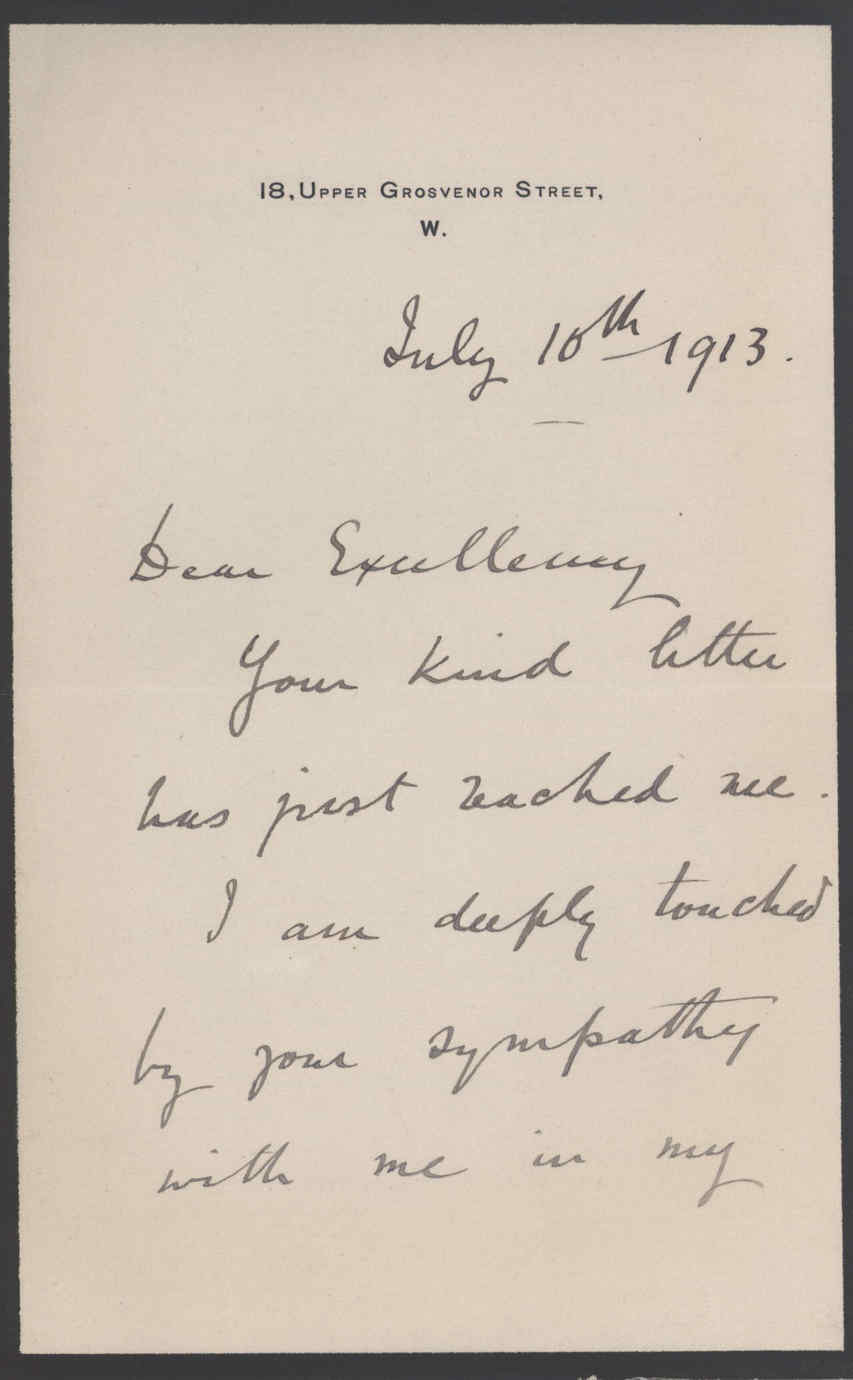 18, UPPER GROSVENOR STREET,
W.
July 10th 1913.
Dear Excellency
Your kind letter
has just reached me.
I am deeply touched
by your sympathy
with me in my